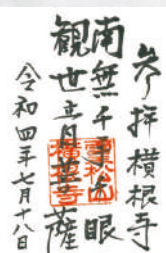 参拝横根寺
南無千手千眼
観世音菩薩
令和四年七月十八日